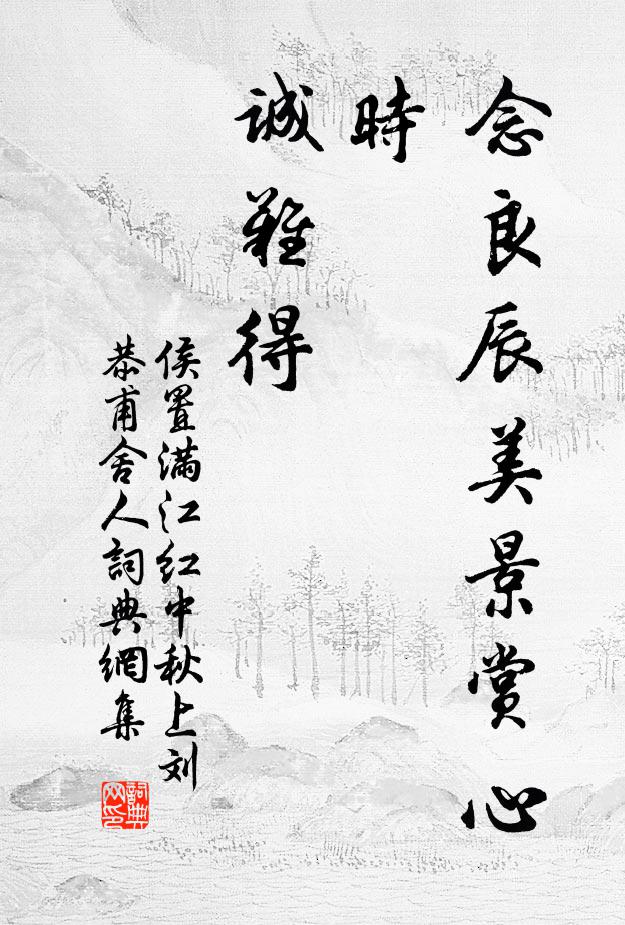 念良辰美景賞心
時
誠難得
侯置满江红中秋上刘
恭甫舍人詞典網集
詞典
网印